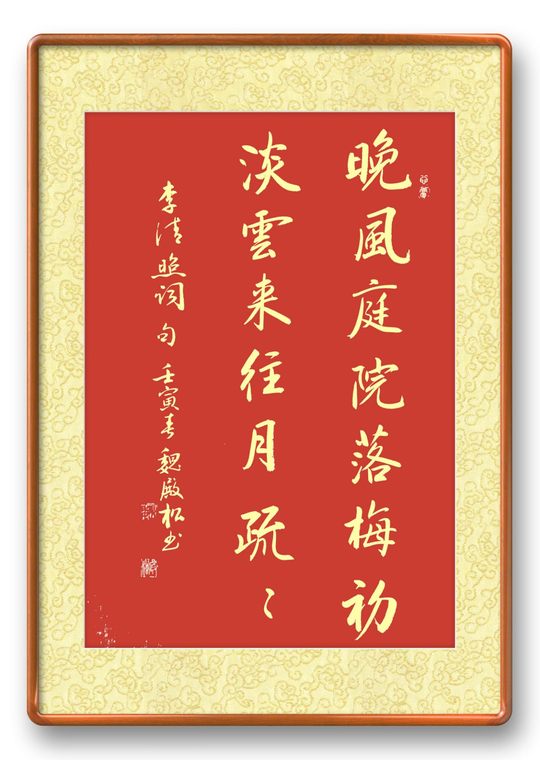 晚風庭院落梅初
淡雲来往月疏〻
李清照词句 壬寅春 魏殿松书